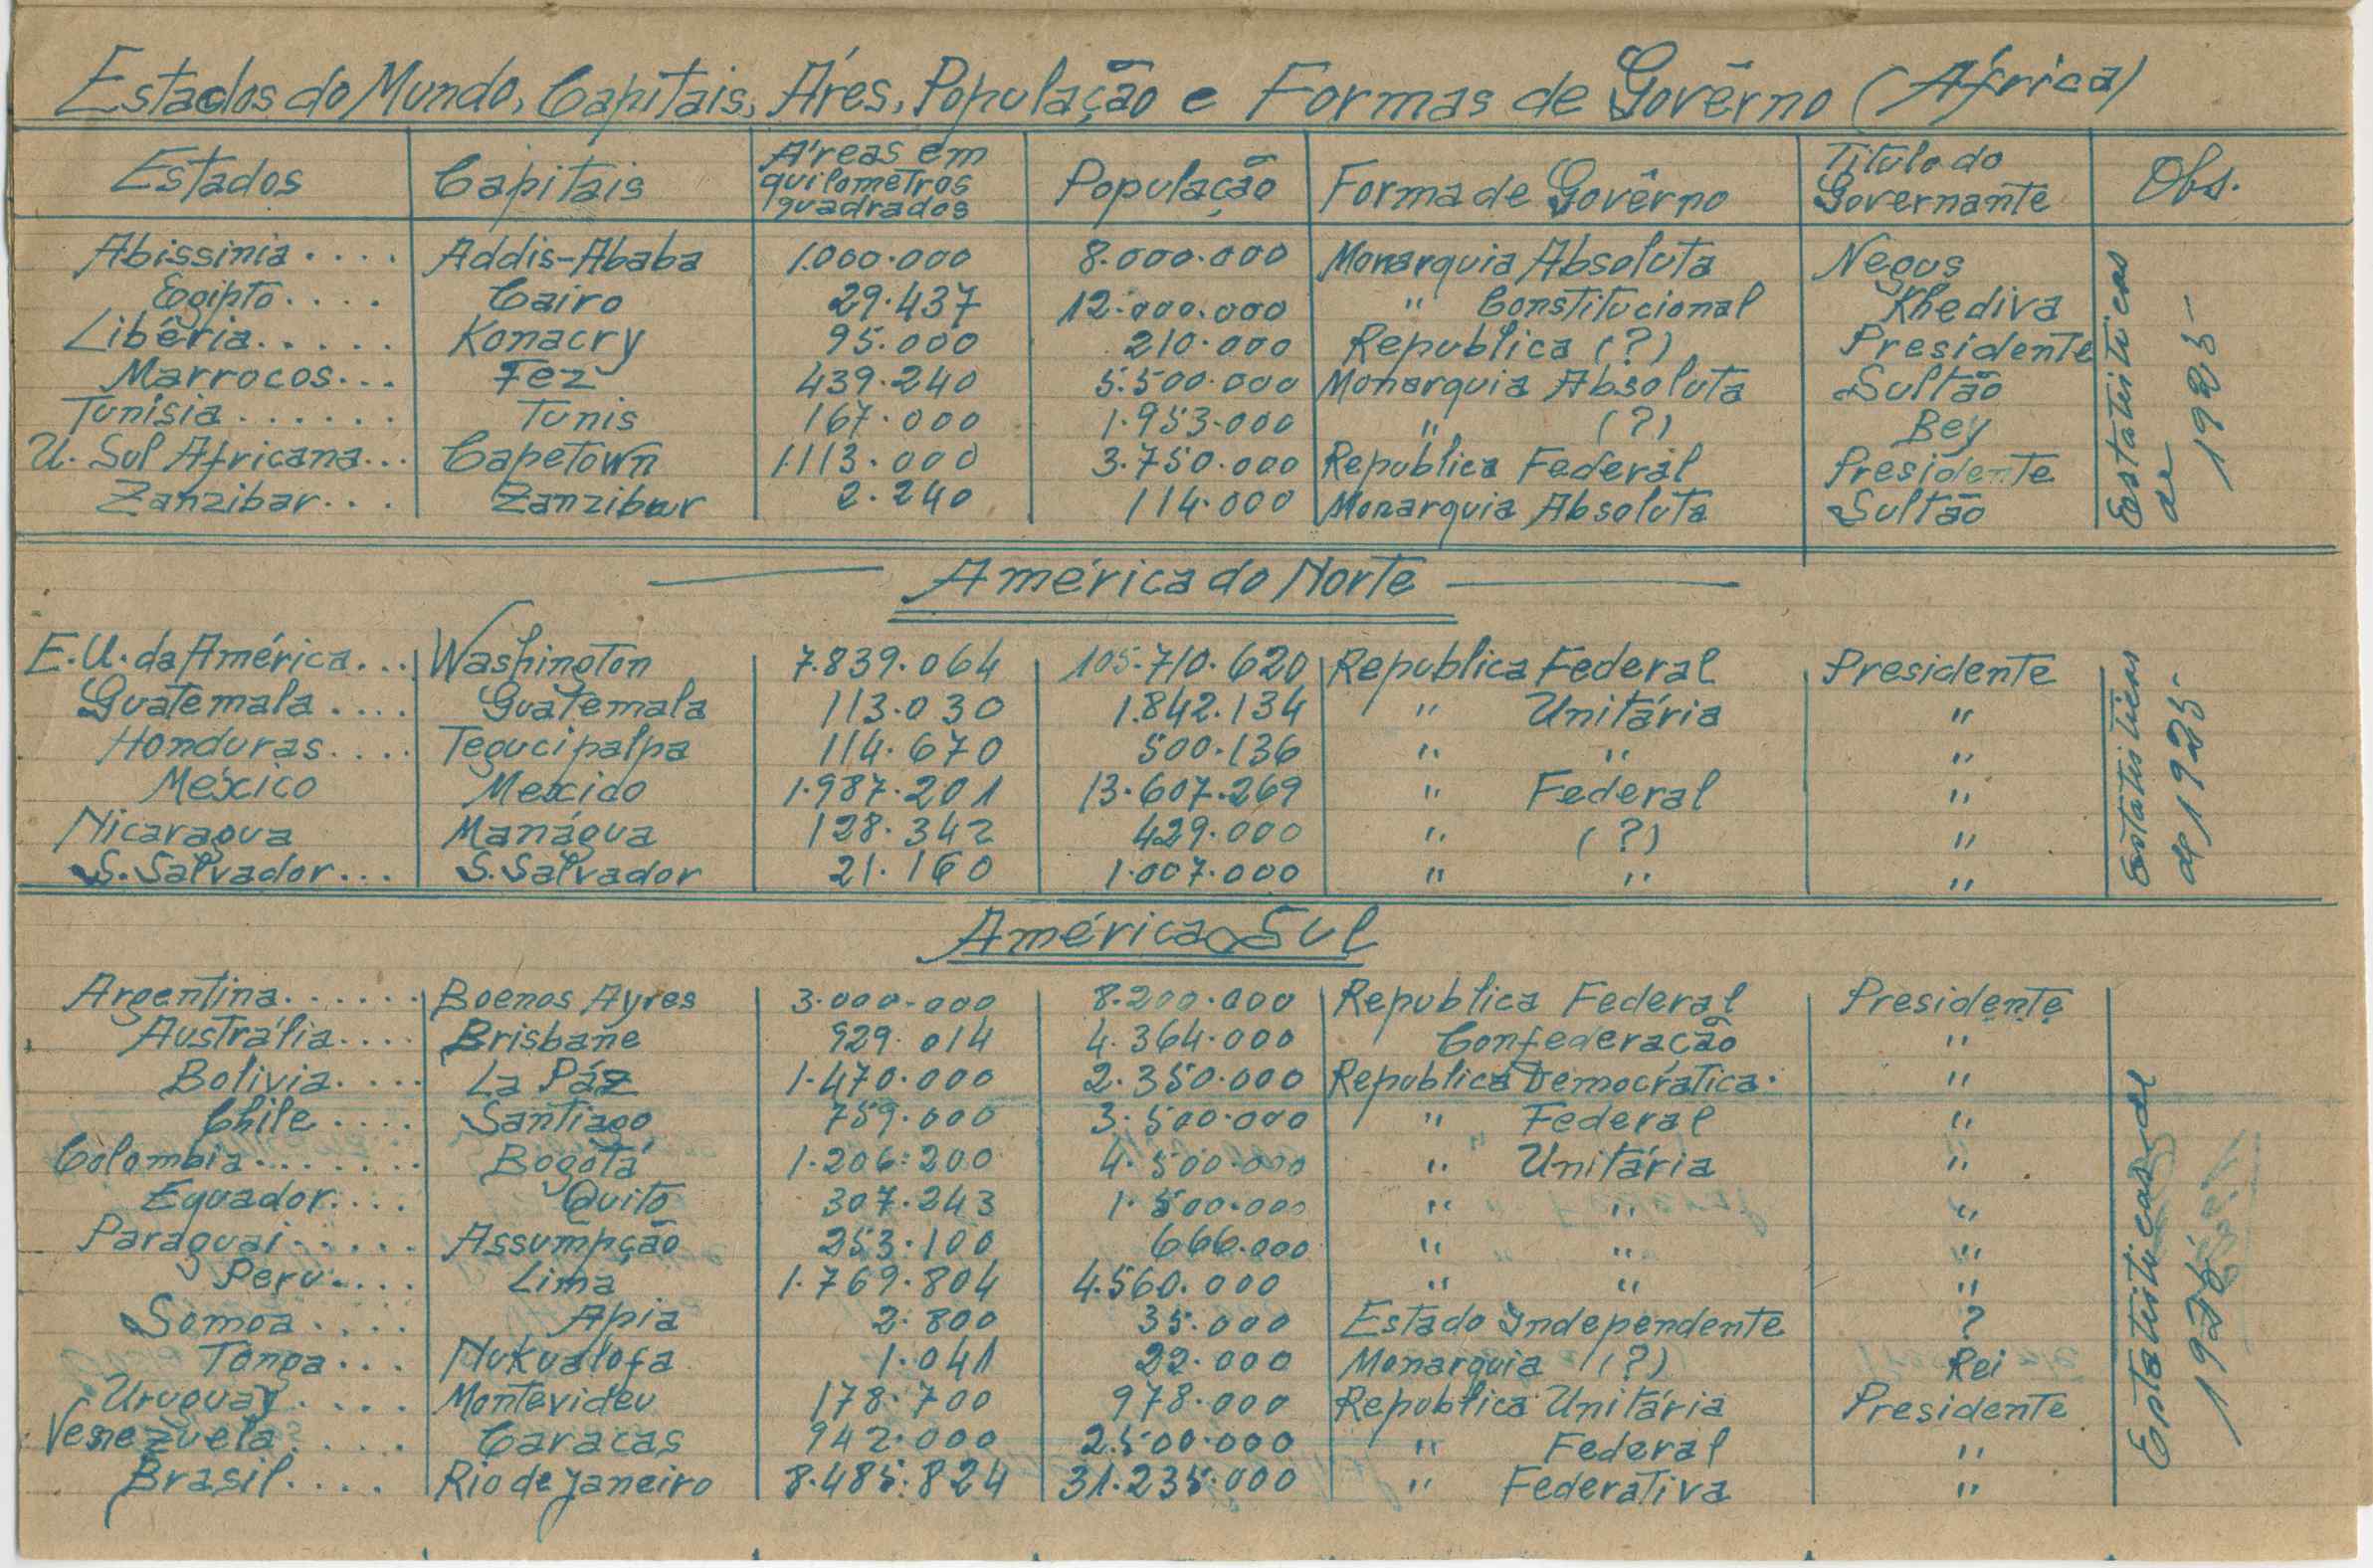 Estados do Mundo, Capitais, Áres, População e Formas de Govêrno (África)
Estados Capitais Áreas em quilometros quadrados População Forma de Govêrno Titulo do Governante Obs.
Abissinia.... Addis-Ababa 1.000.000 8.000.000 Monarquia Absoluta Negus
Egipto.... Cairo 29.437 12.000.000 " Constitucional Khediva
Libêria..... Konacry 95.000 210.000 Republica (?) Presidente
Marrocos... Fez 439.240 5.500.000 Monarquia Absoluta Sultão
Tunisia...... Tunis 167.000 1.953.000 " (?) Bey
U. Sul Africana... Capetown 1.113.000 3.750.000 Republica Federal Presidente
Zanzibar... Zanzibar 2.240 114.000 Monarquia Absoluta Sultão
Estatisticas
de 1925
América do Norte
E.U. da América... Washington 7.839.064 105.710.620 Republica Federal Presidente
Guatemala.... Guatemala 113.030 1.842.134 " Unitária "
Honduras.... Tegucipalpa 114.670 500.136 " " "
México Mexico 1.987.201 13.607.269 " Federal "
Nicaragua Manágua 128.342 429.000 " (?) "
S. Salvador... S. Salvador 21.160 1.007.000 " " "
Estatisticas
de 1925
América Sul
Argentina...... Boenos Ayres 3.000.000 8.200.000 Republica Federal Presidente
Austrália.... Brisbane 929.014 4.364.000 Confederação "
Bolivia.... La Páz 1.470.000 2.350.000 Republica Democrática. "
Chile.... Santiago 759.000 3.500.000 " Federal "
Colombia....... Bogotá 1.206.200 4.500.000 " Unitária "
Equador.... Quito 307.243 1.500.000 " " "
Paraguai..... Assumpção 253.100 666.000 " " "
Peru.... Lima 1.769.804 4.560.000 " " "
Somoa.... Apia 2.800 35.000 Estado Independente ?
Tonga... Nukualofa 1.041 22.000 Monarquia (?) Rei
Uruguay.... Montevideu 178.700 978.000 Republica Unitária Presidente
Venezuela..... Caracas 942.000 2.500.000 " Federal "
Brasil.... Rio de Janeiro 8.485.824 31.235.000 " Federativa "
Estatisticas de